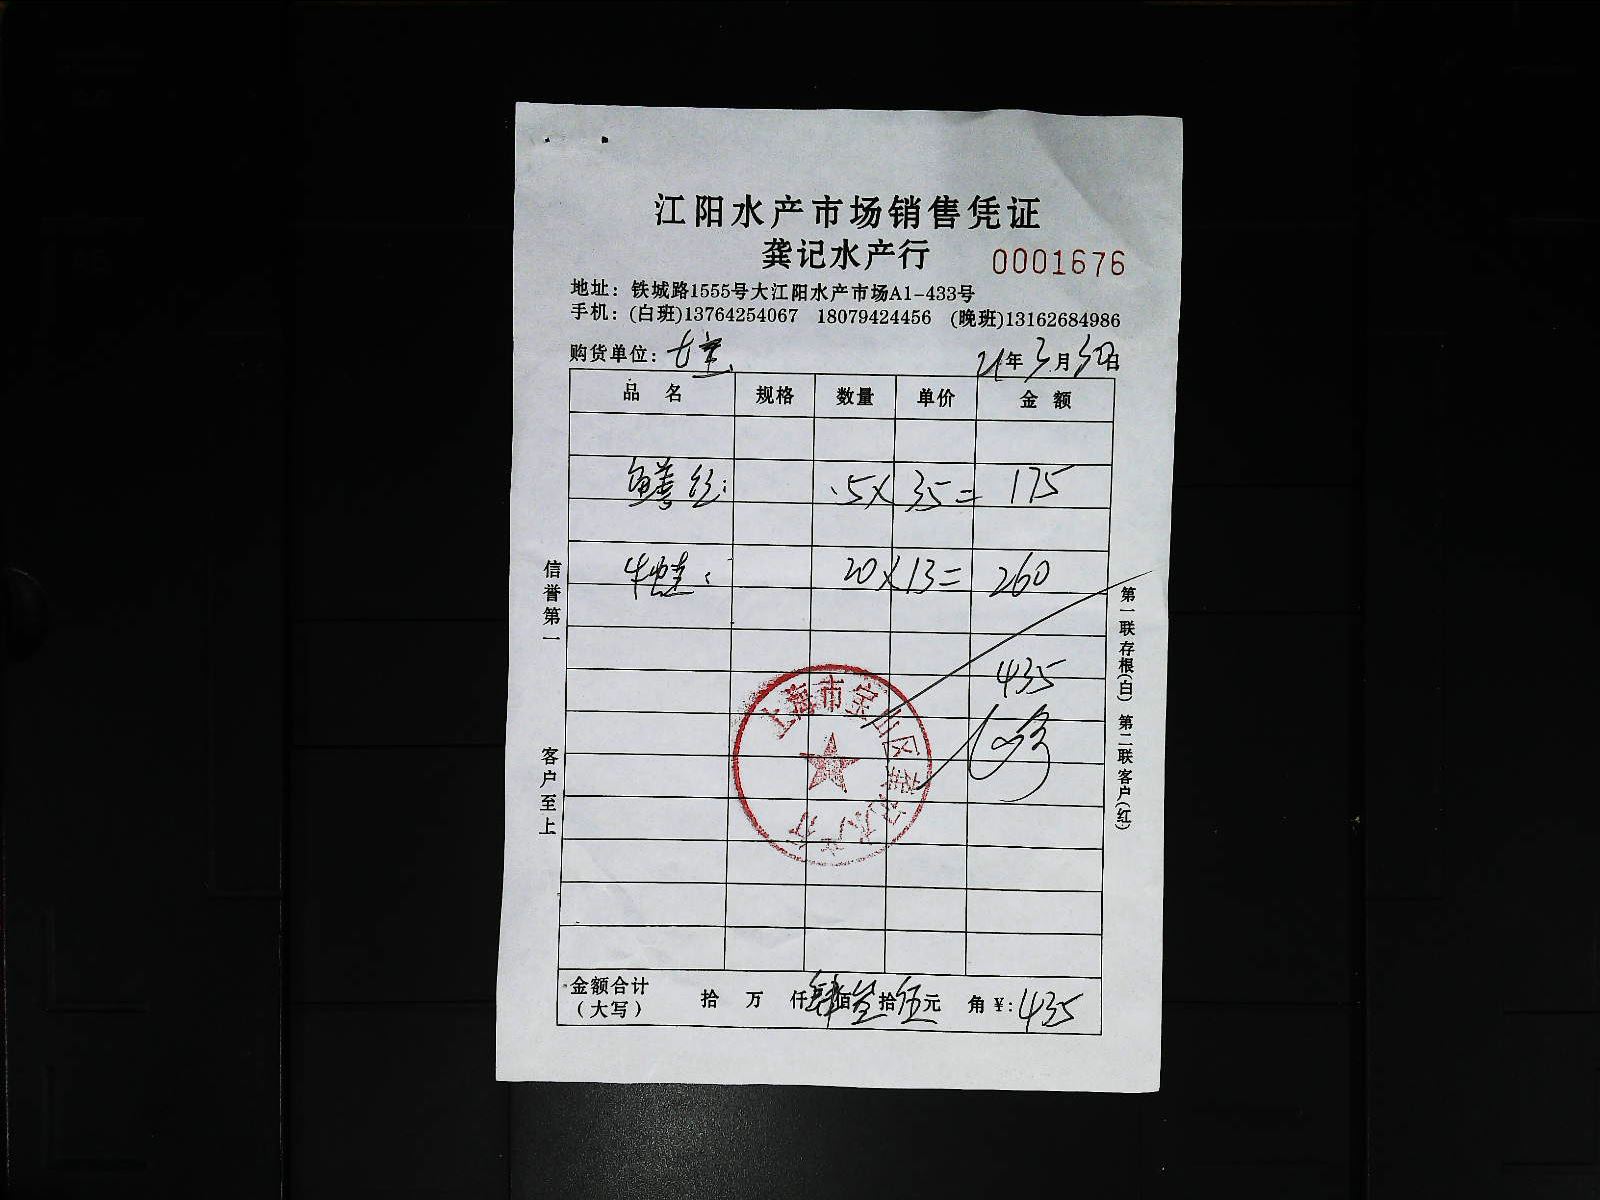 江阳水产市场销售凭证
龚记水产行 0001676
地址：铁城路1555号大江阳水产市场A1-433号
手机：(白班)13764254067 18079424456 (晚班)13162684986
购货单位： 21年3月30日
品名 规格 数量 单价 金额
鳝丝： 5×35= 175
牛蛙： 20×13= 260
435
上海市宝山区龚记水产行
信誉第一
客户至上
第一联存根(白) 第二联客户(红)
金额合计（大写） 拾 万 仟肆佰叁拾伍元 角 ¥:435